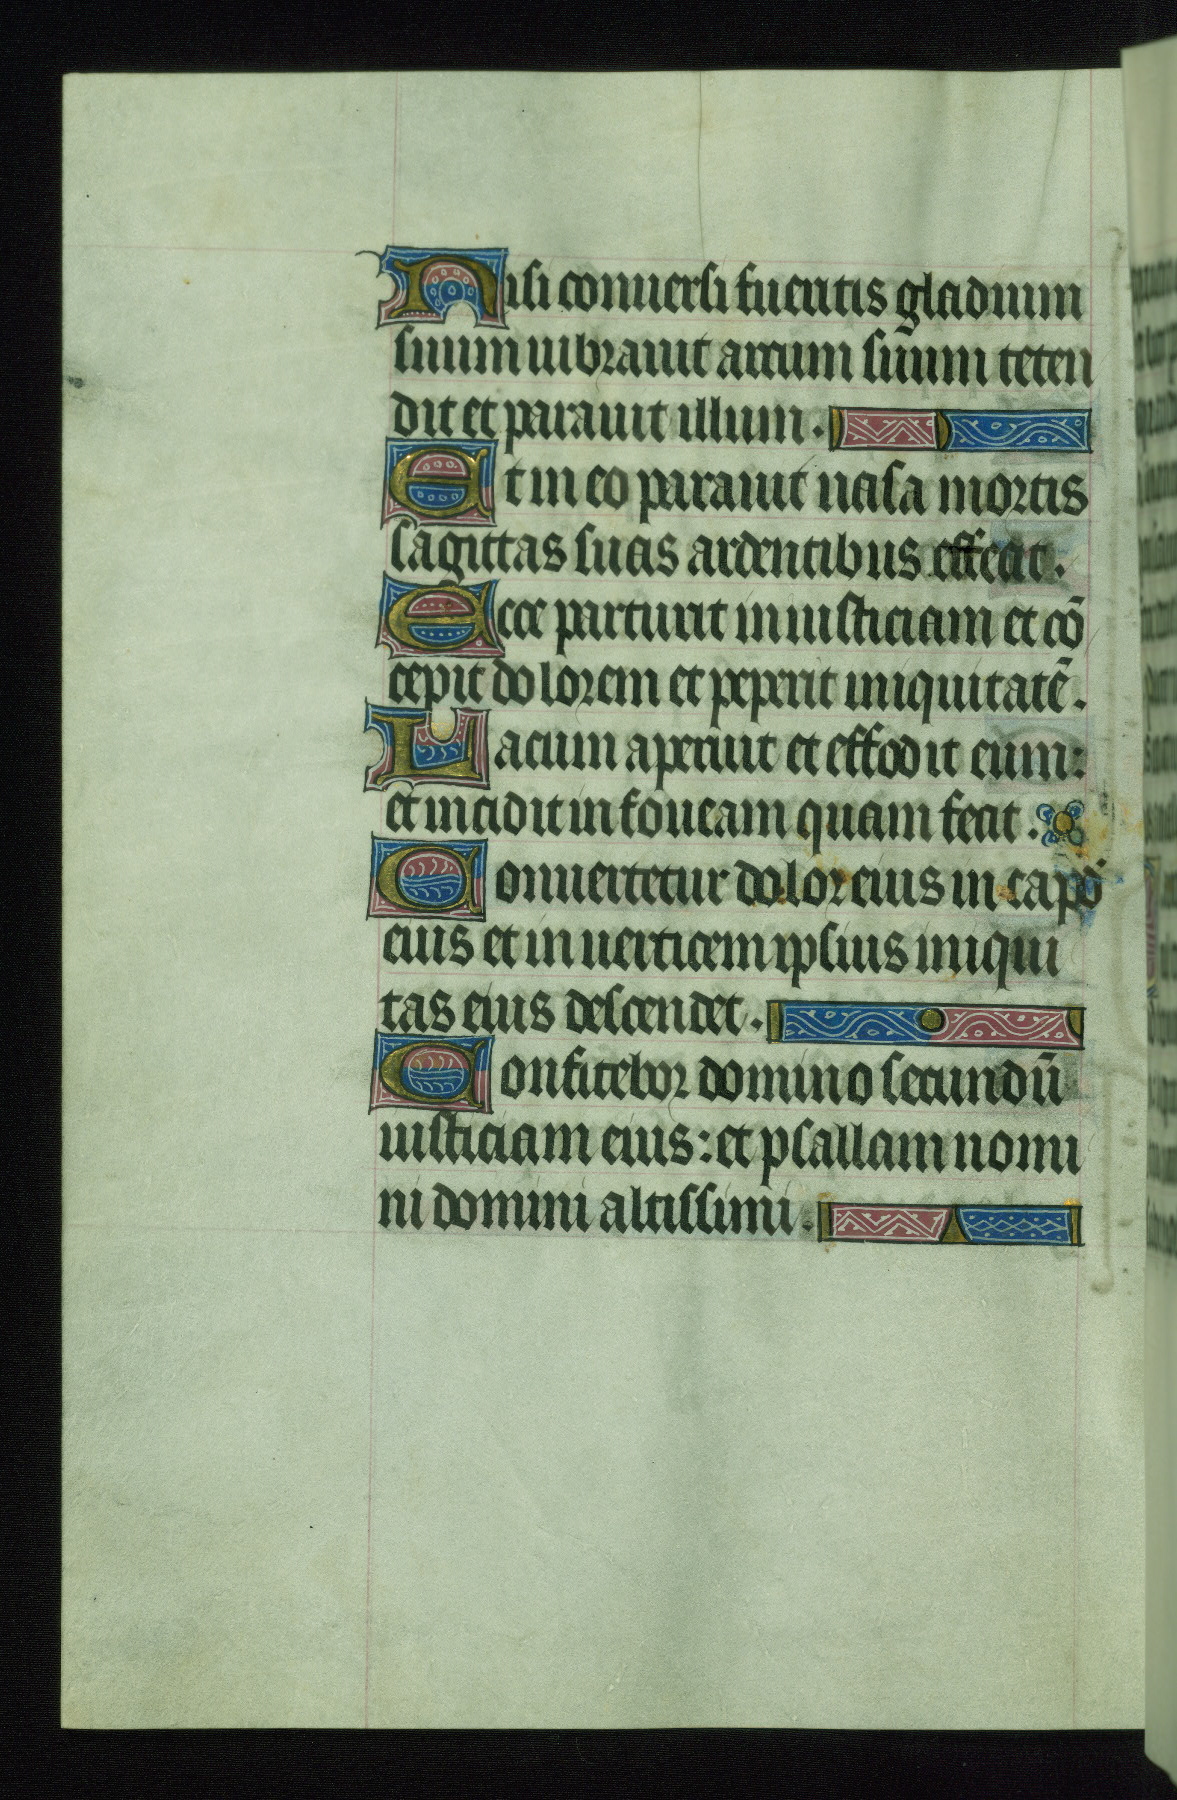 Nisi conuersi fueritis gladium
suum uibrauit arcum suum teten
dit et parauit illum.
Et in eo parauit uasa mortis
sagittas suas ardentibus effecit.
Ecce parturit iniusticiam et cō
cepit dolorem et peperit iniquitatē.
Lacum aperuit et effodit eum:
et incidit in foueam quam fecit.
Conuertetur dolor eius in capū
eius et in uerticem ipsius iniqui
tas eius descendet.
Confitebor domino secundū
iusticiam eius: et psallam nomi
ni domini altissimi.